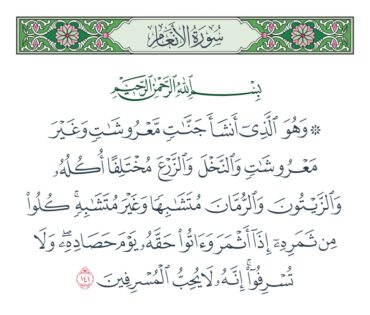 سُورَةُ الأَنْعَامِ
بِسْمِ اللَّهِ الرَّحْمَٰنِ الرَّحِيمِ
۞ وَهُوَ ٱلَّذِىٓ أَنشَأَ جَنَّـٰتٍ مَّعْرُوشَـٰتٍ وَغَيْرَ
مَعْرُوشَـٰتٍ وَٱلنَّخْلَ وَٱلزَّرْعَ مُخْتَلِفًا أُكُلُهُۥ
وَٱلزَّيْتُونَ وَٱلرُّمَّانَ مُتَشَـٰبِهًا وَغَيْرَ مُتَشَـٰبِهٍۚ كُلُوا۟
مِن ثَمَرِهِۦٓ إِذَآ أَثْمَرَ وَءَاتُوا۟ حَقَّهُۥ يَوْمَ حَصَادِهِۦۖ وَلَا
تُسْرِفُوٓا۟ۚ إِنَّهُۥ لَا يُحِبُّ ٱلْمُسْرِفِينَ ١٤١